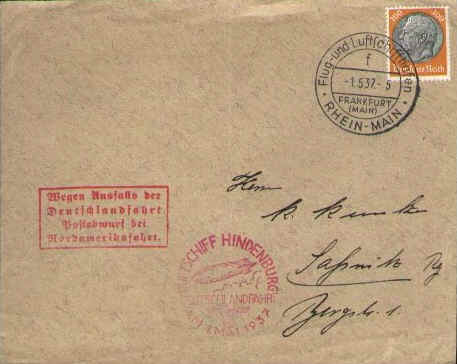 100 100
Deutsches Reich
Flug- und Luftschiffhafen
f
-1.5.37.- 5
FRANKFURT
(MAIN)
RHEIN-MAIN
Wegen Ausfalls der
Deutschlandfahrt
Postabwurf bei
Nordamerikafahrt.
LUFTSCHIFF HINDENBURG
DEUTSCHLANDFAHRT
AM 1. MAI 1937
Herrn
K. Kunke
Saßnitz Rg
Bergstr. 1